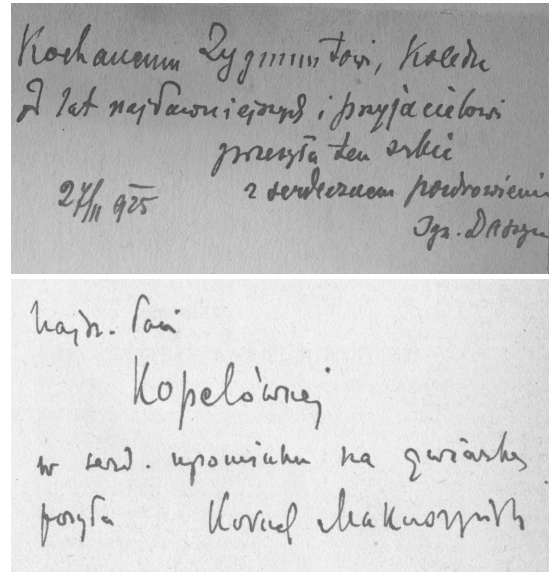 Kochanemu Zygmuntowi, Koledze
z lat najdawniejszych i przyjacielowi
przesyła ten szkic
z serdecznem pozdrowieniem
27/II 925
Ign. Daszyn
Pani
Kopelównej
w serd. upominku na gwiazdkę
posyła Kornel Makuszyński